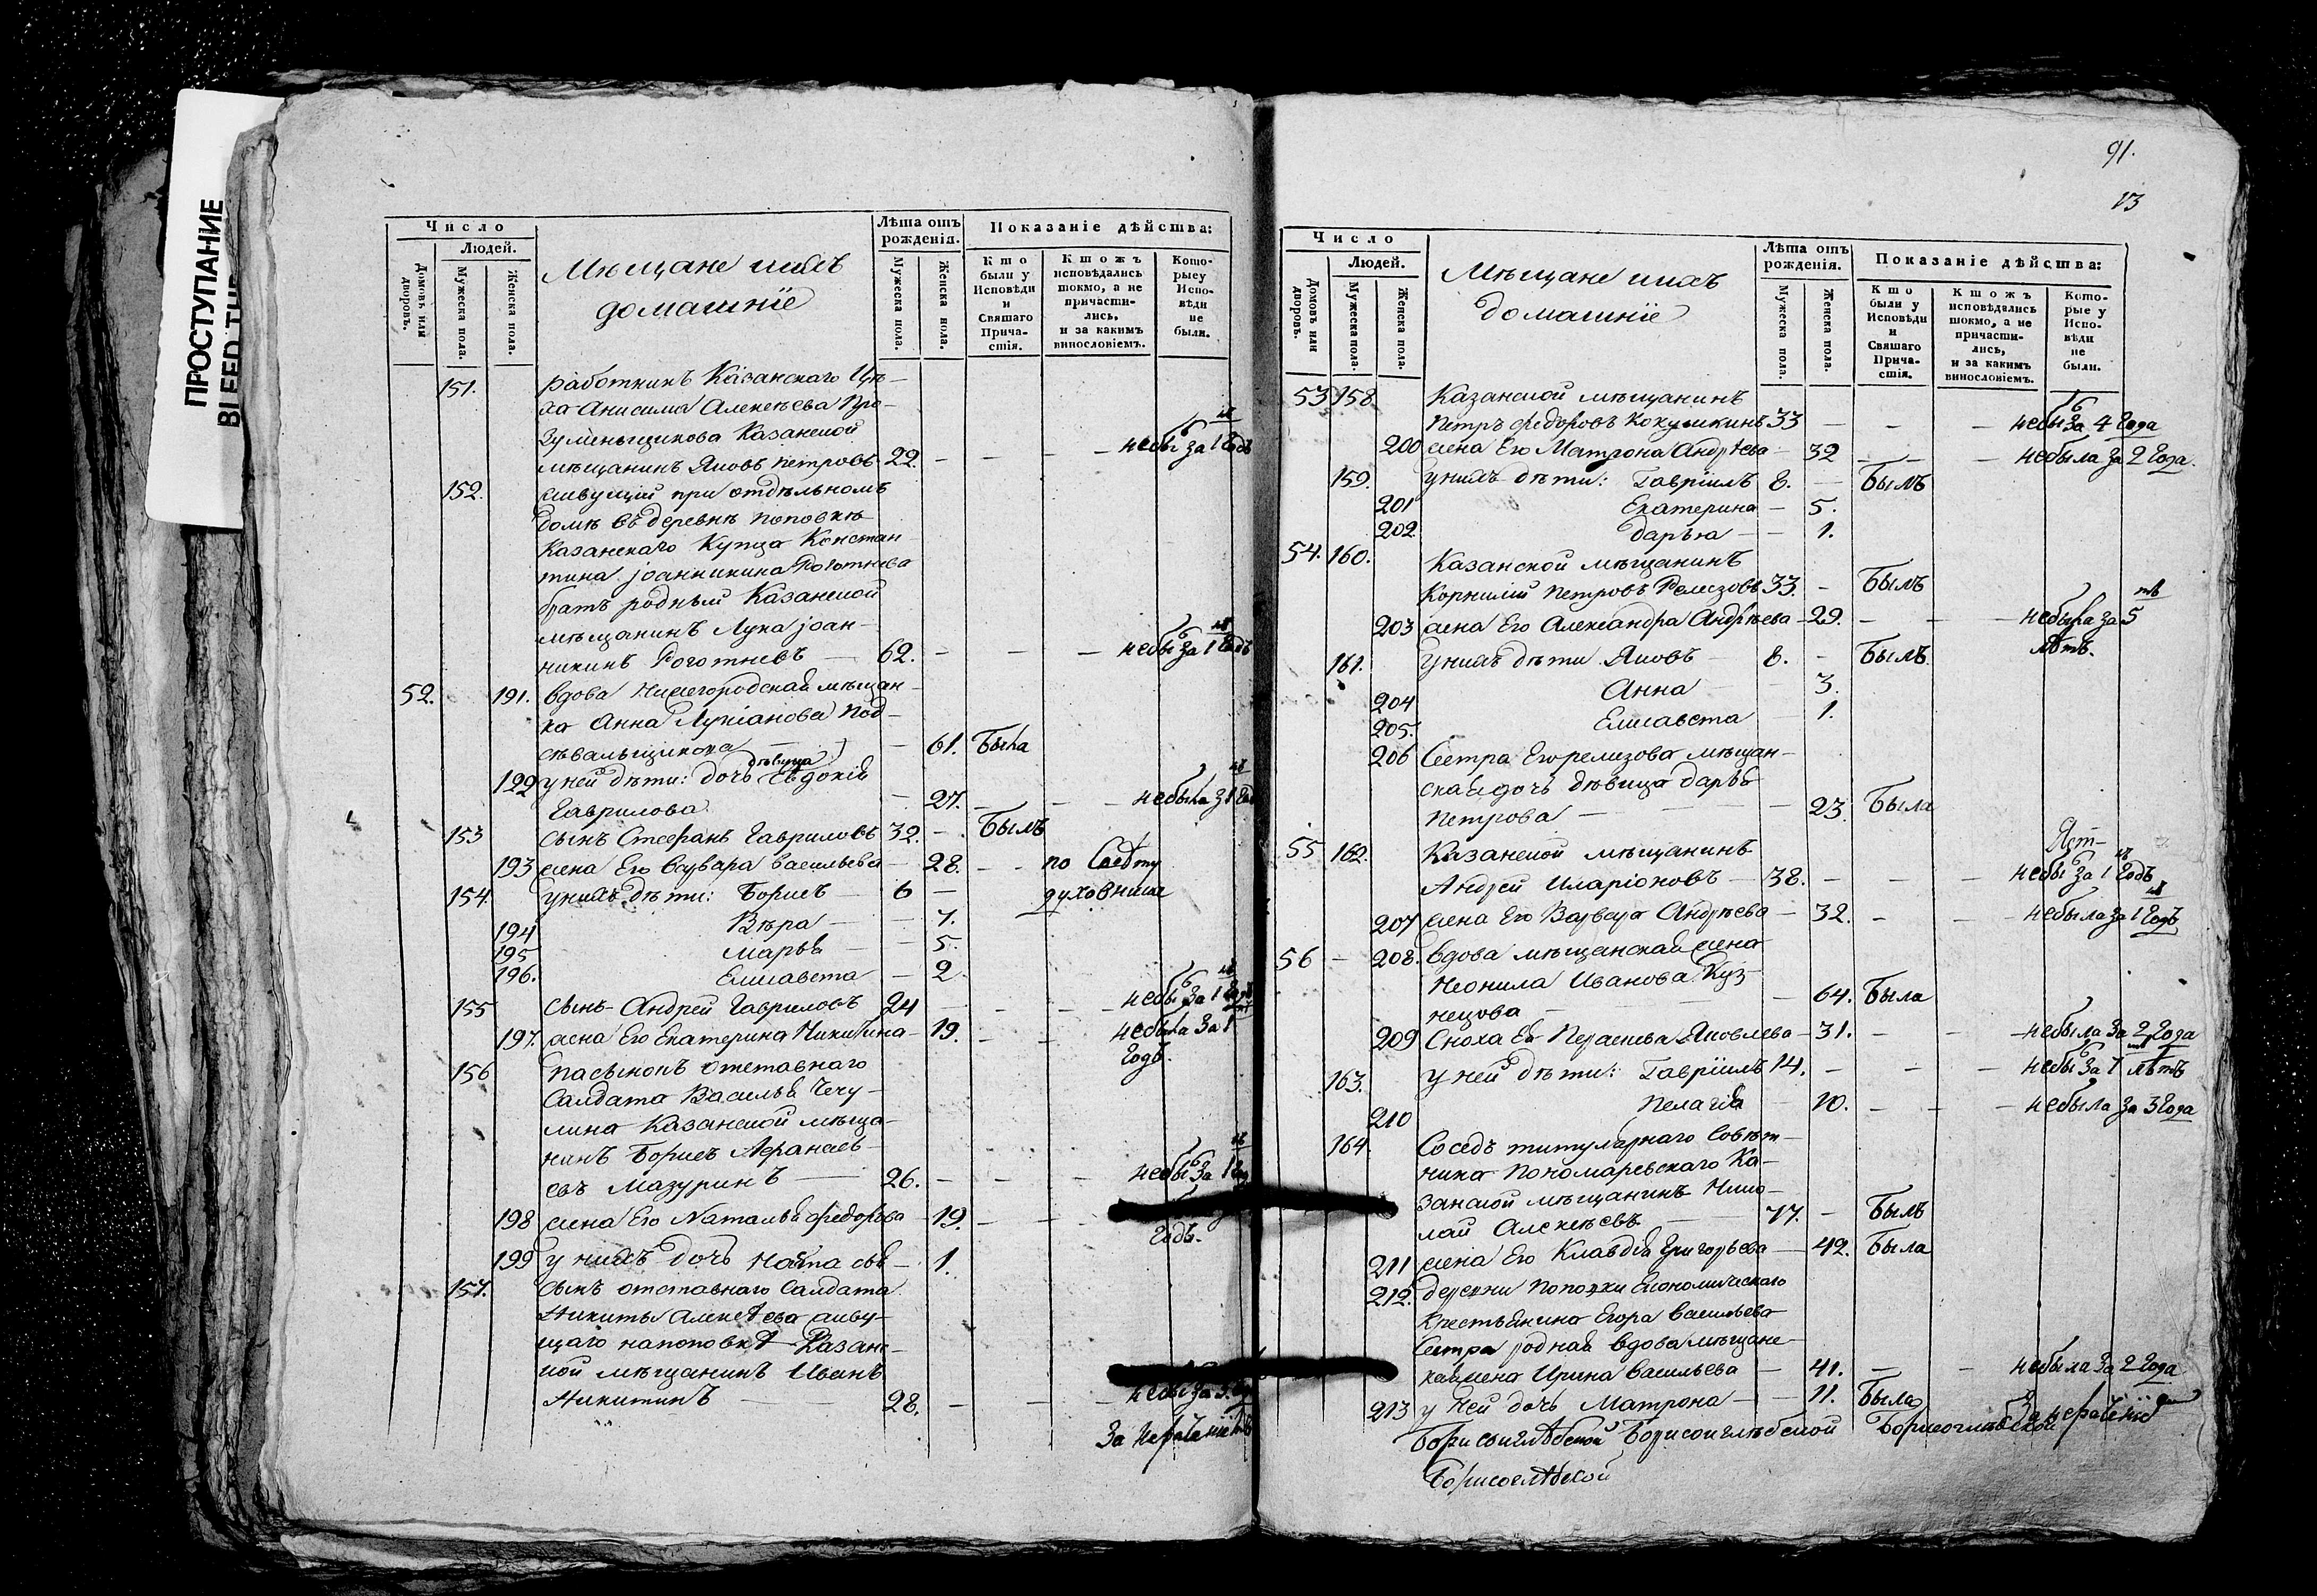 ПРОСТУПАНИЕ
BLEED THR
Число
Людей.
Домовъ или дворовъ.
Мужеска пола.
Женска пола.
Мѣщане иихъ
домашнїе
Лѣта отъ рожденія.
Мужеска пола.
Женска пола.
Показаніе дѣйства:
Кто были у Исповѣди и Святаго Прича-стія.
Ктожъ исповѣдались токмо, а не причасти-лись, и за какимъ винословіемъ.
Кото-рыеу Испо-вѣди не были.
151. работникъ Казанскаго Цѣ-
ха Анисима Алексѣева Про-
зуменьщикова Казанской
мѣщанинъ Яковъ Петровъ 22. небы за 1 Годъ
152. живущій при отдѣльномъ
домѣ въ деревнѣ Поповкѣ
Казанскаго Купца Констан-
тина Іоанникина Роготнева
братъ родный Казанской
мѣщанинъ Лука Іоан-
никинъ Роготневъ 62. небы за 1 Годъ
52. 191. вдова Нижегородская мѣщан-
ка Анна
сѣвальщикова 61. Была
192 у ней дѣти: дочь дѣвица Евдокія
Гаврилова 27. небыла за 1 Годъ
153 сынъ Стефанъ Гавриловъ 32. Былъ
193 жена Его Варвара Васильева 28. по Совѣту
154 у нихъ дѣти: Борисъ 6 духовника
194 Вѣра 7.
195 Марья 5.
196. Елисавета 2
155 сынъ Андрей Гавриловъ 24 небы за 1 Годъ
197. жена Его Екатерина Никитина 19. небыла за 1
Годъ.
156 пасынокъ отставнаго
Салдата Василья Чеку-
лина Казанской мѣща-
нинъ Борисъ Афанасьевъ
евъ Мазуринъ 26. небы за 1
198 жена Его Наталья Федорова 19.
Годъ.
199 у нихъ дочь 1.
157. сынъ отставнаго Салдата
Никиты Алексѣева живу-
щаго напоповкѣ Казанс-
кой мѣщанинъ Иванъ
Никитинъ 28. небы за 3.
За нераченіемъ
91.
13
Число
Людей.
Домовъ или дворовъ.
Мужеска пола.
Женска пола.
Мѣщане иихъ
домашнїе
Лѣта отъ рожденія.
Мужеска пола.
Женска пола.
Показаніе дѣйства:
Кто были у Исповѣди и Святаго Прича-стія.
Ктожъ исповѣдались токмо, а не причасти-лись, и за какимъ винословіемъ.
Кото-рые у Испо-вѣди не были.
53 158 Казанской мѣщанинъ
Петръ Федоровъ Кокушкинъ 33 небы за 4 Года
200 жена Его Матрона Андрѣева 32 небыла за 2 Года.
159. у нихъ дѣти: Гавріилъ 8. Былъ
201 Екатерина 5.
202 Дарья 1.
54. 160. Казанской мѣщанинъ
Корнилій Петровъ Релизовъ 33. Былъ
203 жена Его Александра Андрѣева 29. небыла за 5
лѣтъ.
161. у нихъ дѣти Яковъ 8. Былъ
204 Анна 3.
205. Елисавета 1.
206 Сестра Его релизова мѣщан-
ская дочь дѣвица Дарья
Петрова 23. Была
55 162. Казанской мѣщанинъ
Андрей Иларіоновъ 38. небы за 1 Годъ
207 жена Его Варвара Андрѣева 32. небыла за 1 Годъ
56 208. вдова мѣщанская жена
Неонила Иванова Куз-
нецова 64. Была
209 Сноха Ея Парасковья Яковлева 31. небыла за 2 Года
163. у ней дѣти: Гавріилъ 14. небы за 7 лѣтъ
210 Пелагія 10. небыла за 3 Года
164 Соседъ титулярнаго Совѣт-
ника Пономаревскаго Ка-
занской мѣщанинъ Нико-
лай Алексѣевъ 77. Былъ
211 жена Его Клавдія Григорьева 42. Была
212. деревни Поповки Економическаго
Крестьянина Егора Васильева
Сестра родная вдова мѣщанс-
кая жена Ирина Васильева 41. небыла за 2 Года
213 у ней дочь Матрона 11. Была
За нераченіе
Борисоглѣбской Борисоглѣбской Борисоглѣбской
Борисоглѣбской